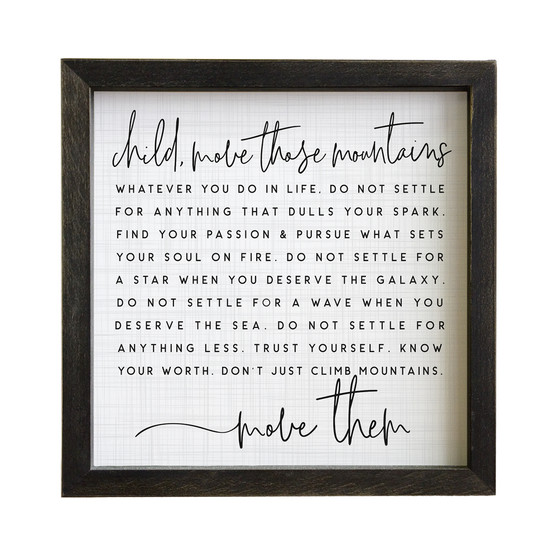 child, move those mountains
WHATEVER YOU DO IN LIFE, DO NOT SETTLE
FOR ANYTHING THAT DULLS YOUR SPARK.
FIND YOUR PASSION & PURSUE WHAT SETS
YOUR SOUL ON FIRE. DO NOT SETTLE FOR
A STAR WHEN YOU DESERVE THE GALAXY.
DO NOT SETTLE FOR A WAVE WHEN YOU
DESERVE THE SEA. DO NOT SETTLE FOR
ANYTHING LESS. TRUST YOURSELF. KNOW
YOUR WORTH. DON'T JUST CLIMB MOUNTAINS.
move them